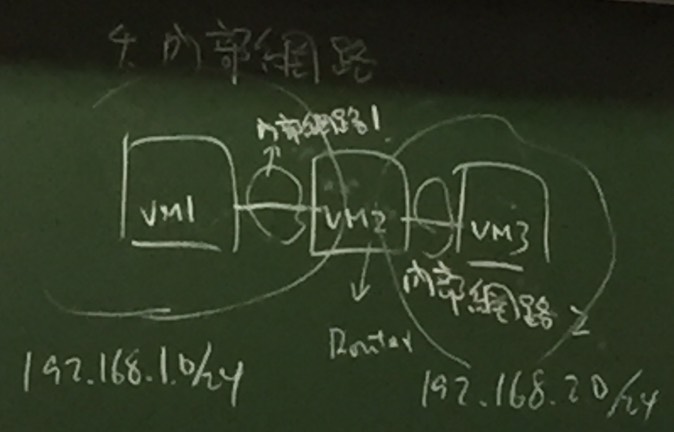 4. 內部網路
內部網路1
VM1
VM2
VM3
內部網路2
Router
192.168.1.0/24
192.168.2.0/24